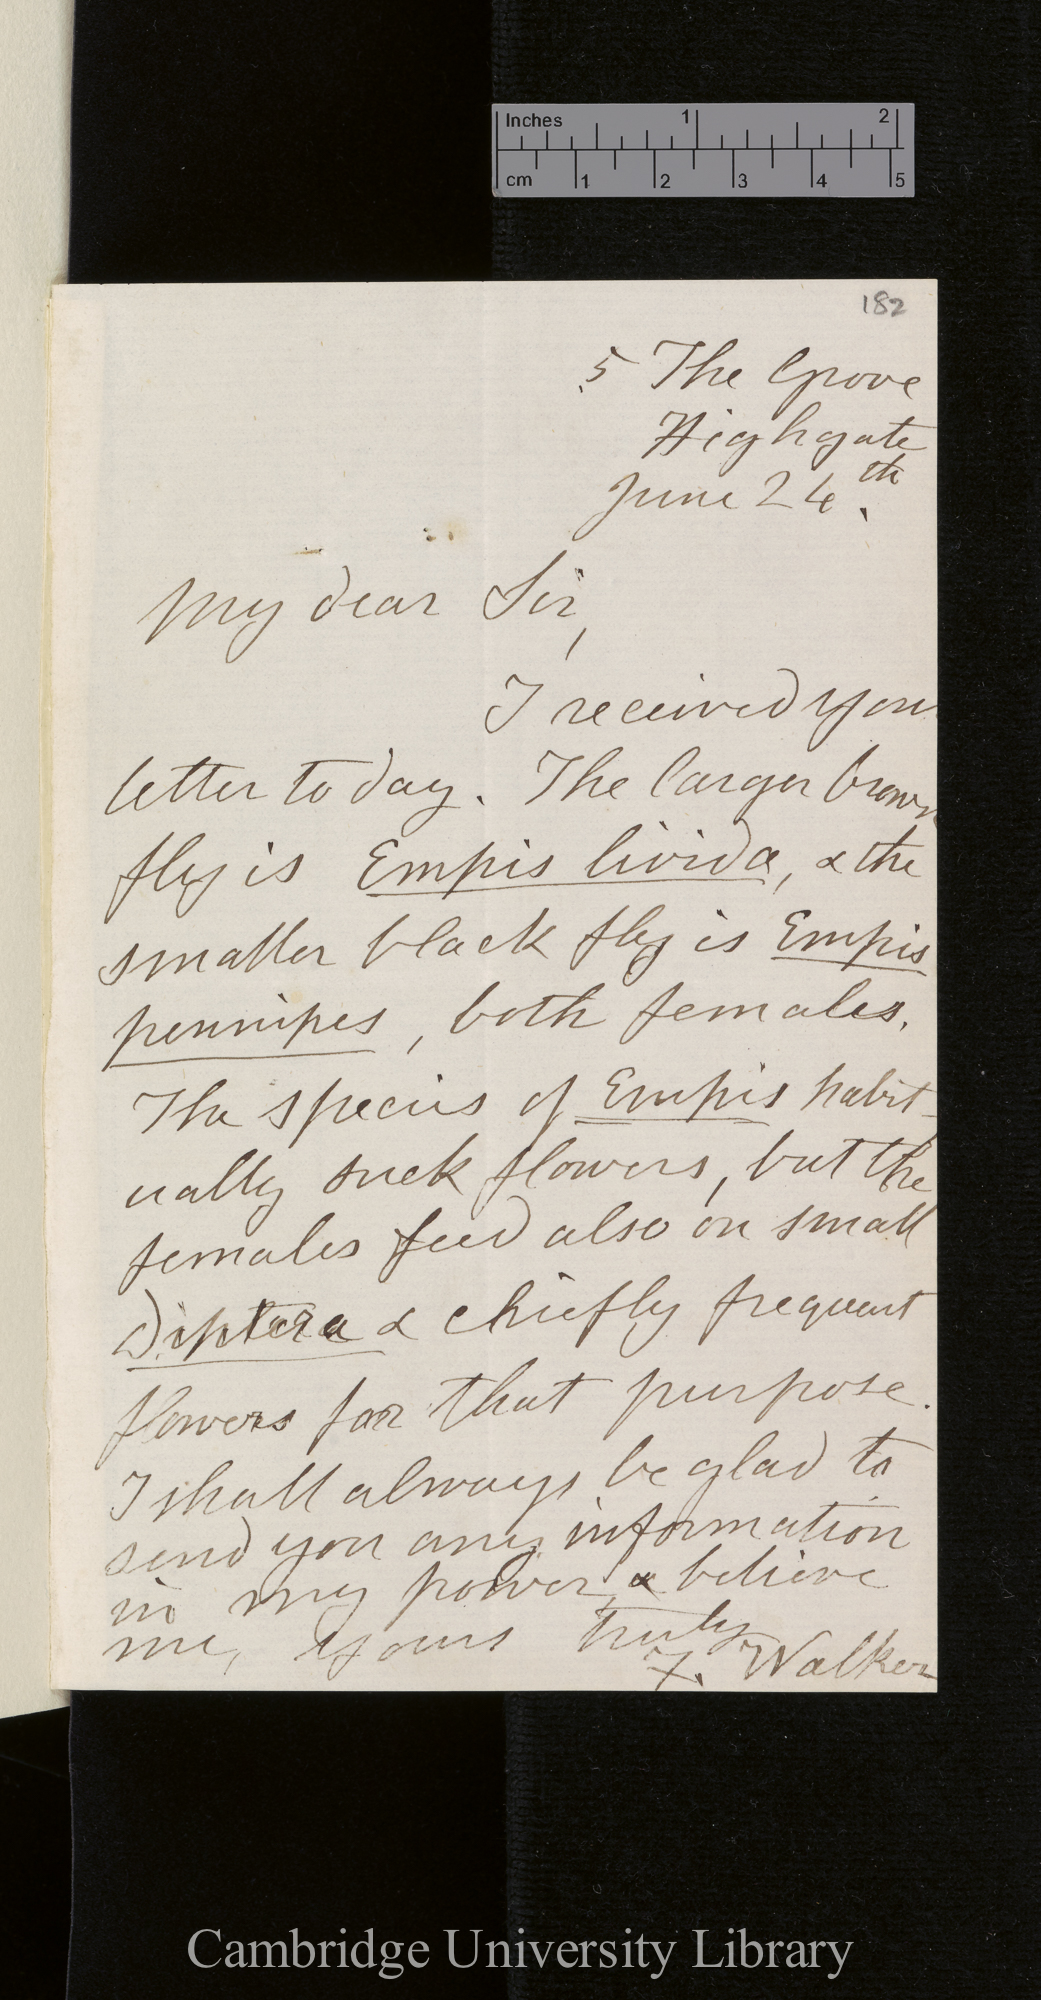 Inches 1 2
cm 1 2 3 4 5
182
5 The Grove
Highgate
June 24th.
My dear Sir,
I received your
letter to day. The larger brown
fly is Empis livida, & the
smaller black fly is Empis
pennipes, both females.
The species of Empis habit-
ually suck flowers, but the
females feed also on small
Diptera & chiefly frequent
flowers for that purpose.
I shall always be glad to
send you any information
in my power, & believe
me, yours truly
F. Walker
Cambridge University Library